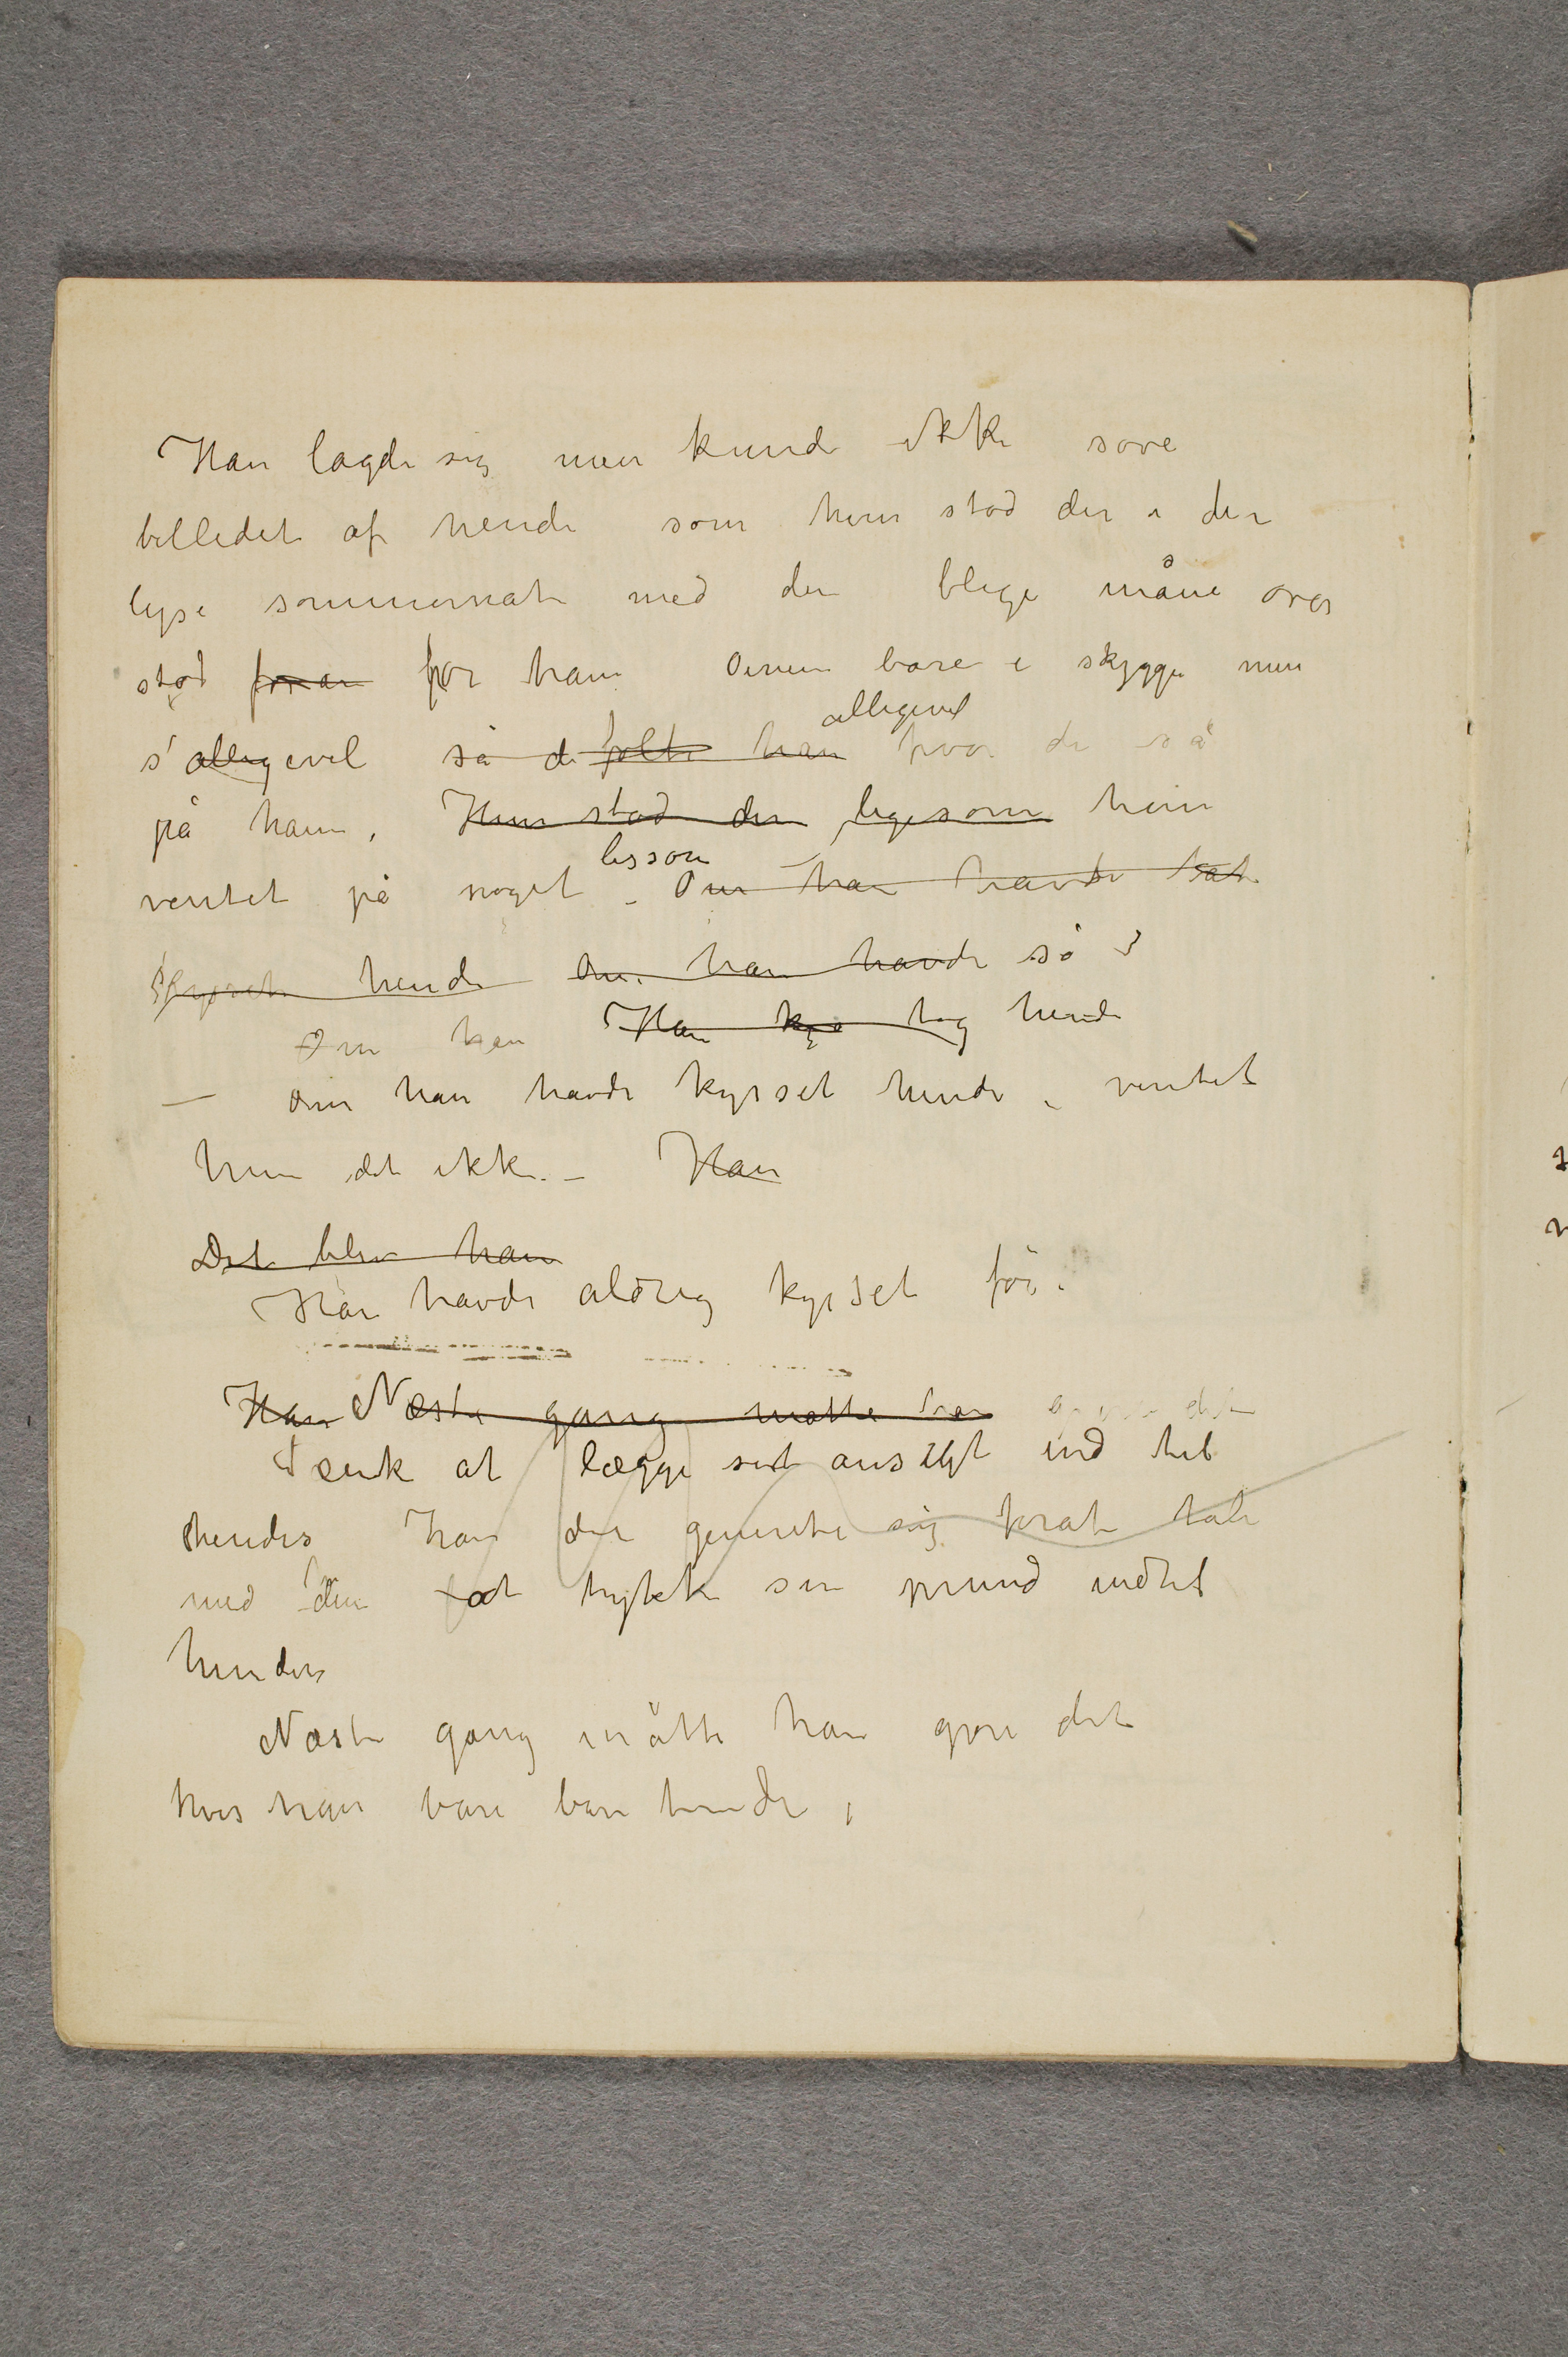 Han lagde sig men kunde ikke sove
billedet af hende som hun stod der i den
lyse sommernat med den blege måne over
stod foran for ham Øinene bare i skygge men
alligevel
s' alligevel så de følte han hvor de så
på ham, Hun stod der ligesom hun
lissom
ventet på noget – Om han havde tat
kysset hende Om han havde så
Om han Han kys tog hende
– Om han havde kysset hende, ventet
hun det ikke – Han
Det blev han
Han havde aldrig kysset før.
Han Næste gang måtte han gøre det
Tænk at lægge sit ansigt ind til
hendes han der generte sig forat tale
med den at trykke sin mund indtil
hendes
Næste gang måtte han gøre det
hvis han bare bare turde,